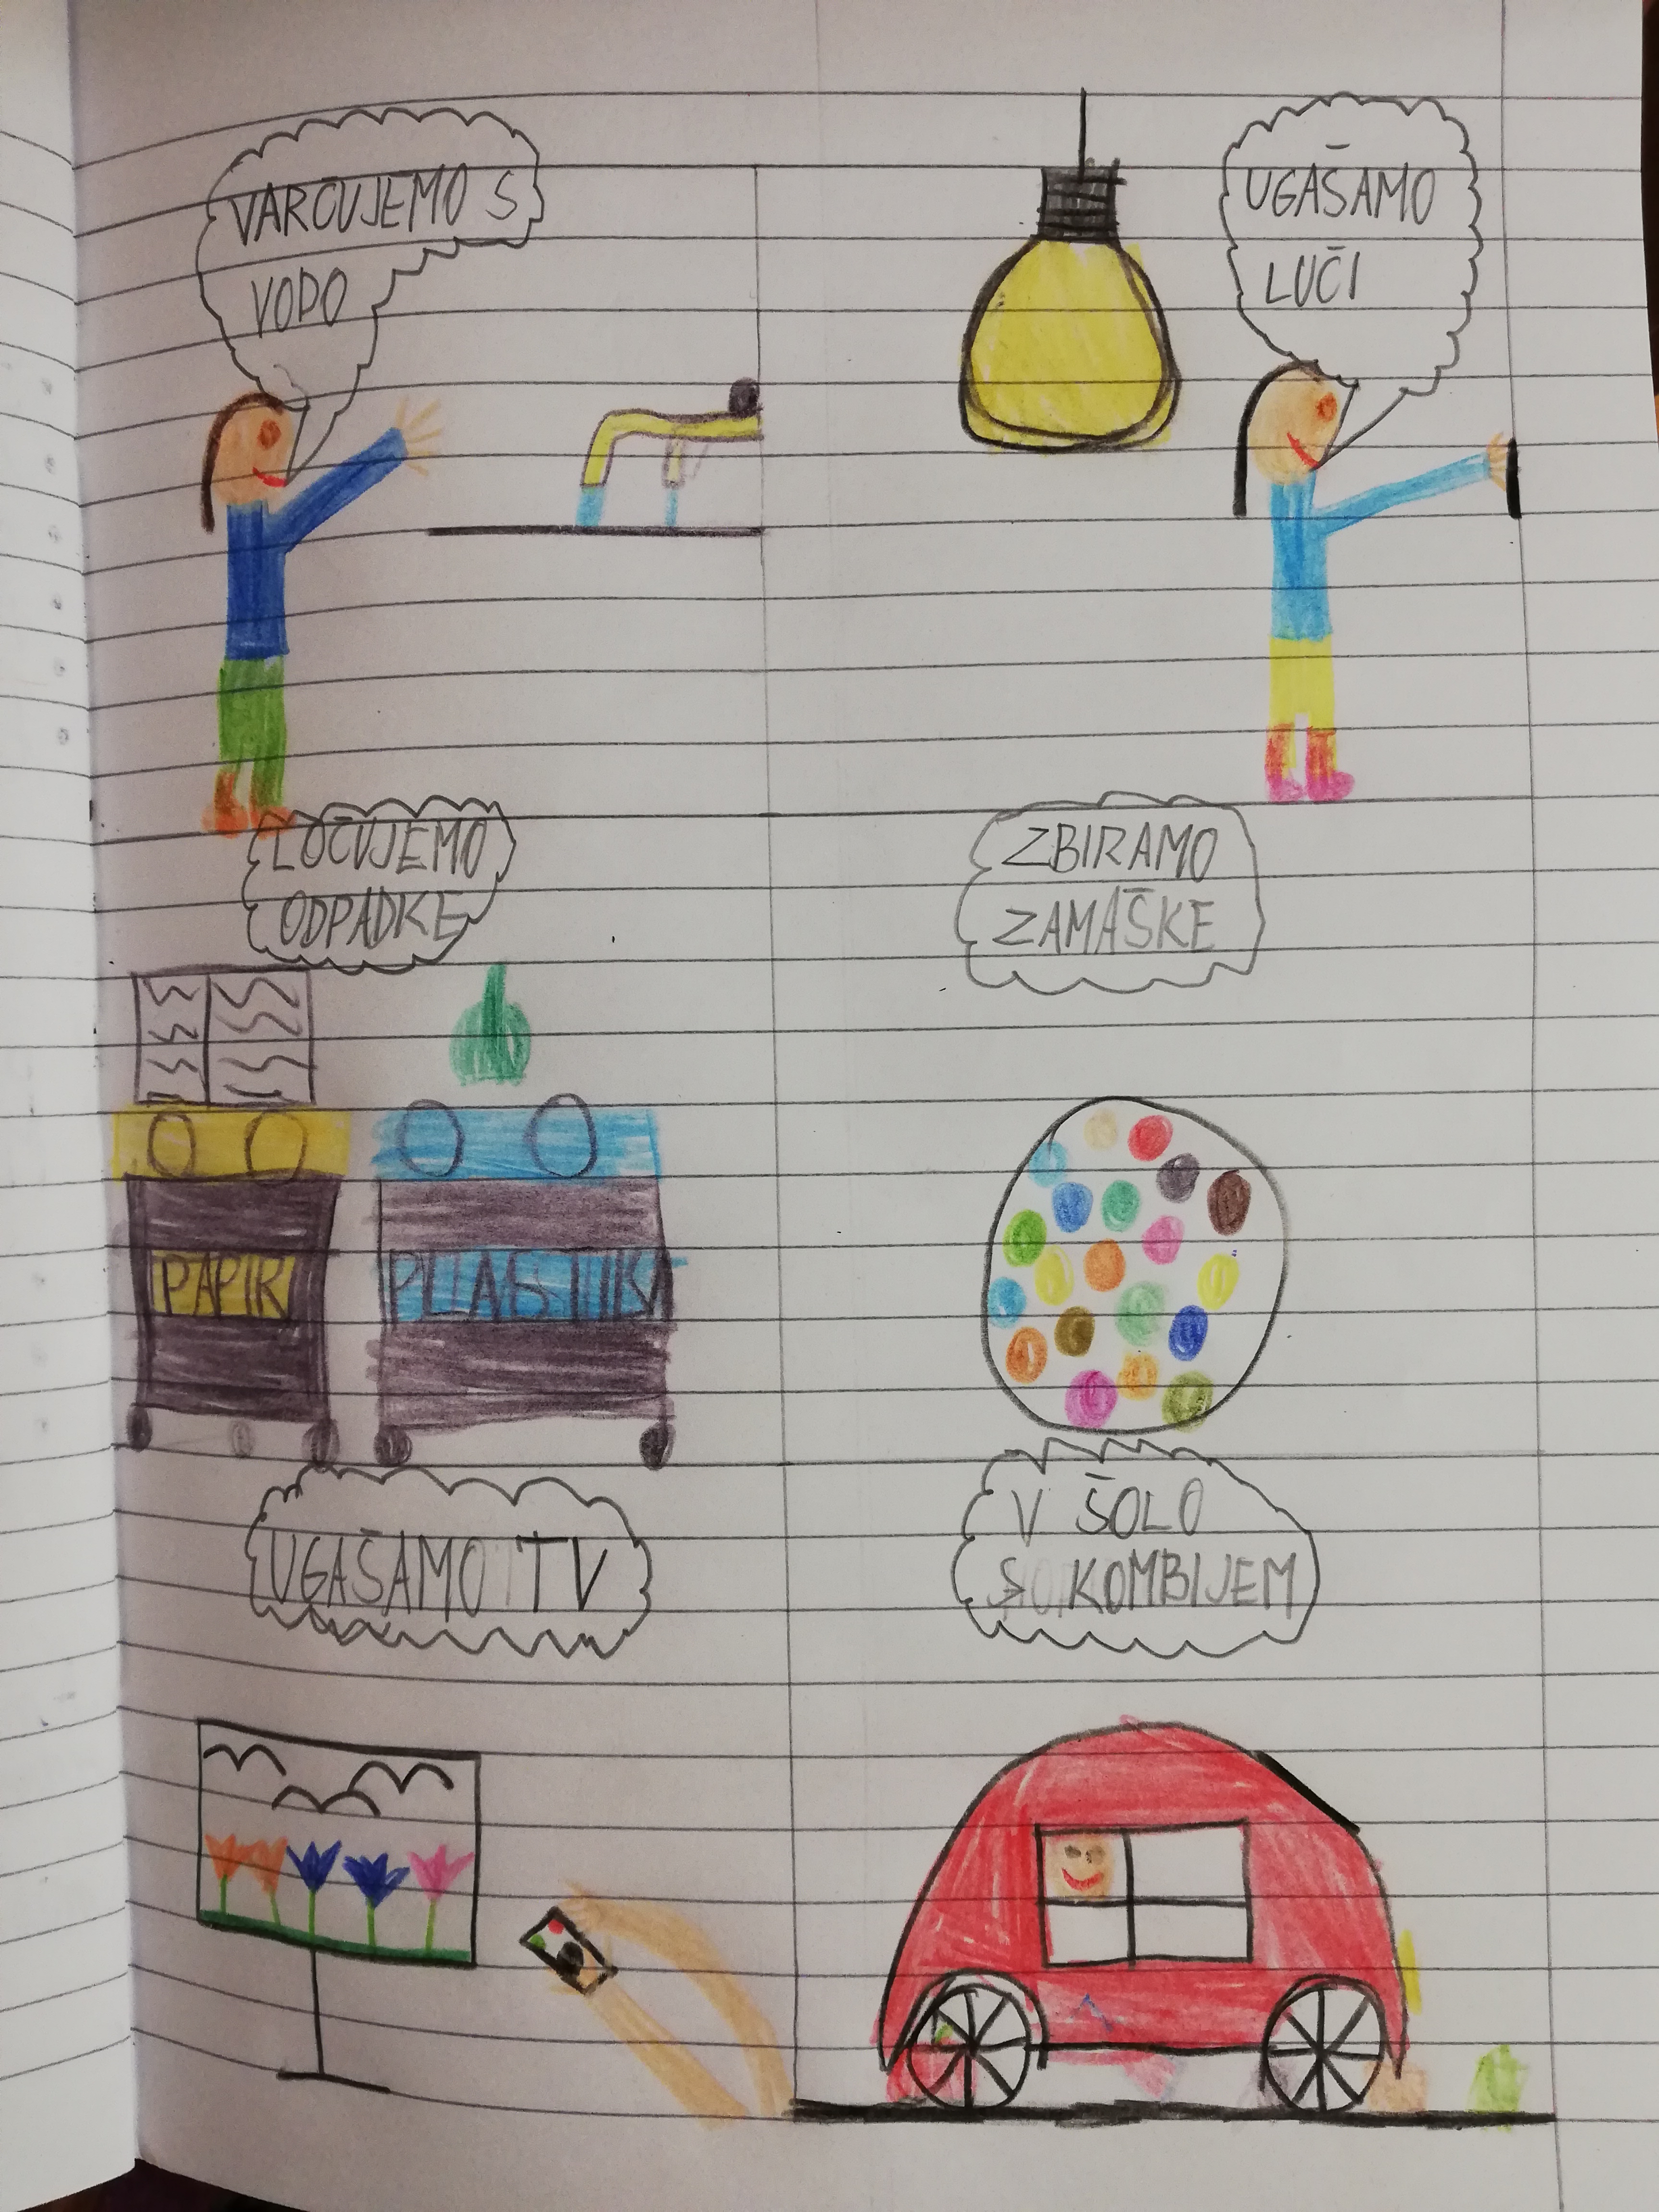 VARČUJEMO S
VODO
UGAŠAMO
LUČI
LOČUJEMO
ODPADKE
ZBIRAMO
ZAMAŠKE
PAPIR
PLASTIKA
UGAŠAMO TV
V ŠOLO
S KOMBIJEM